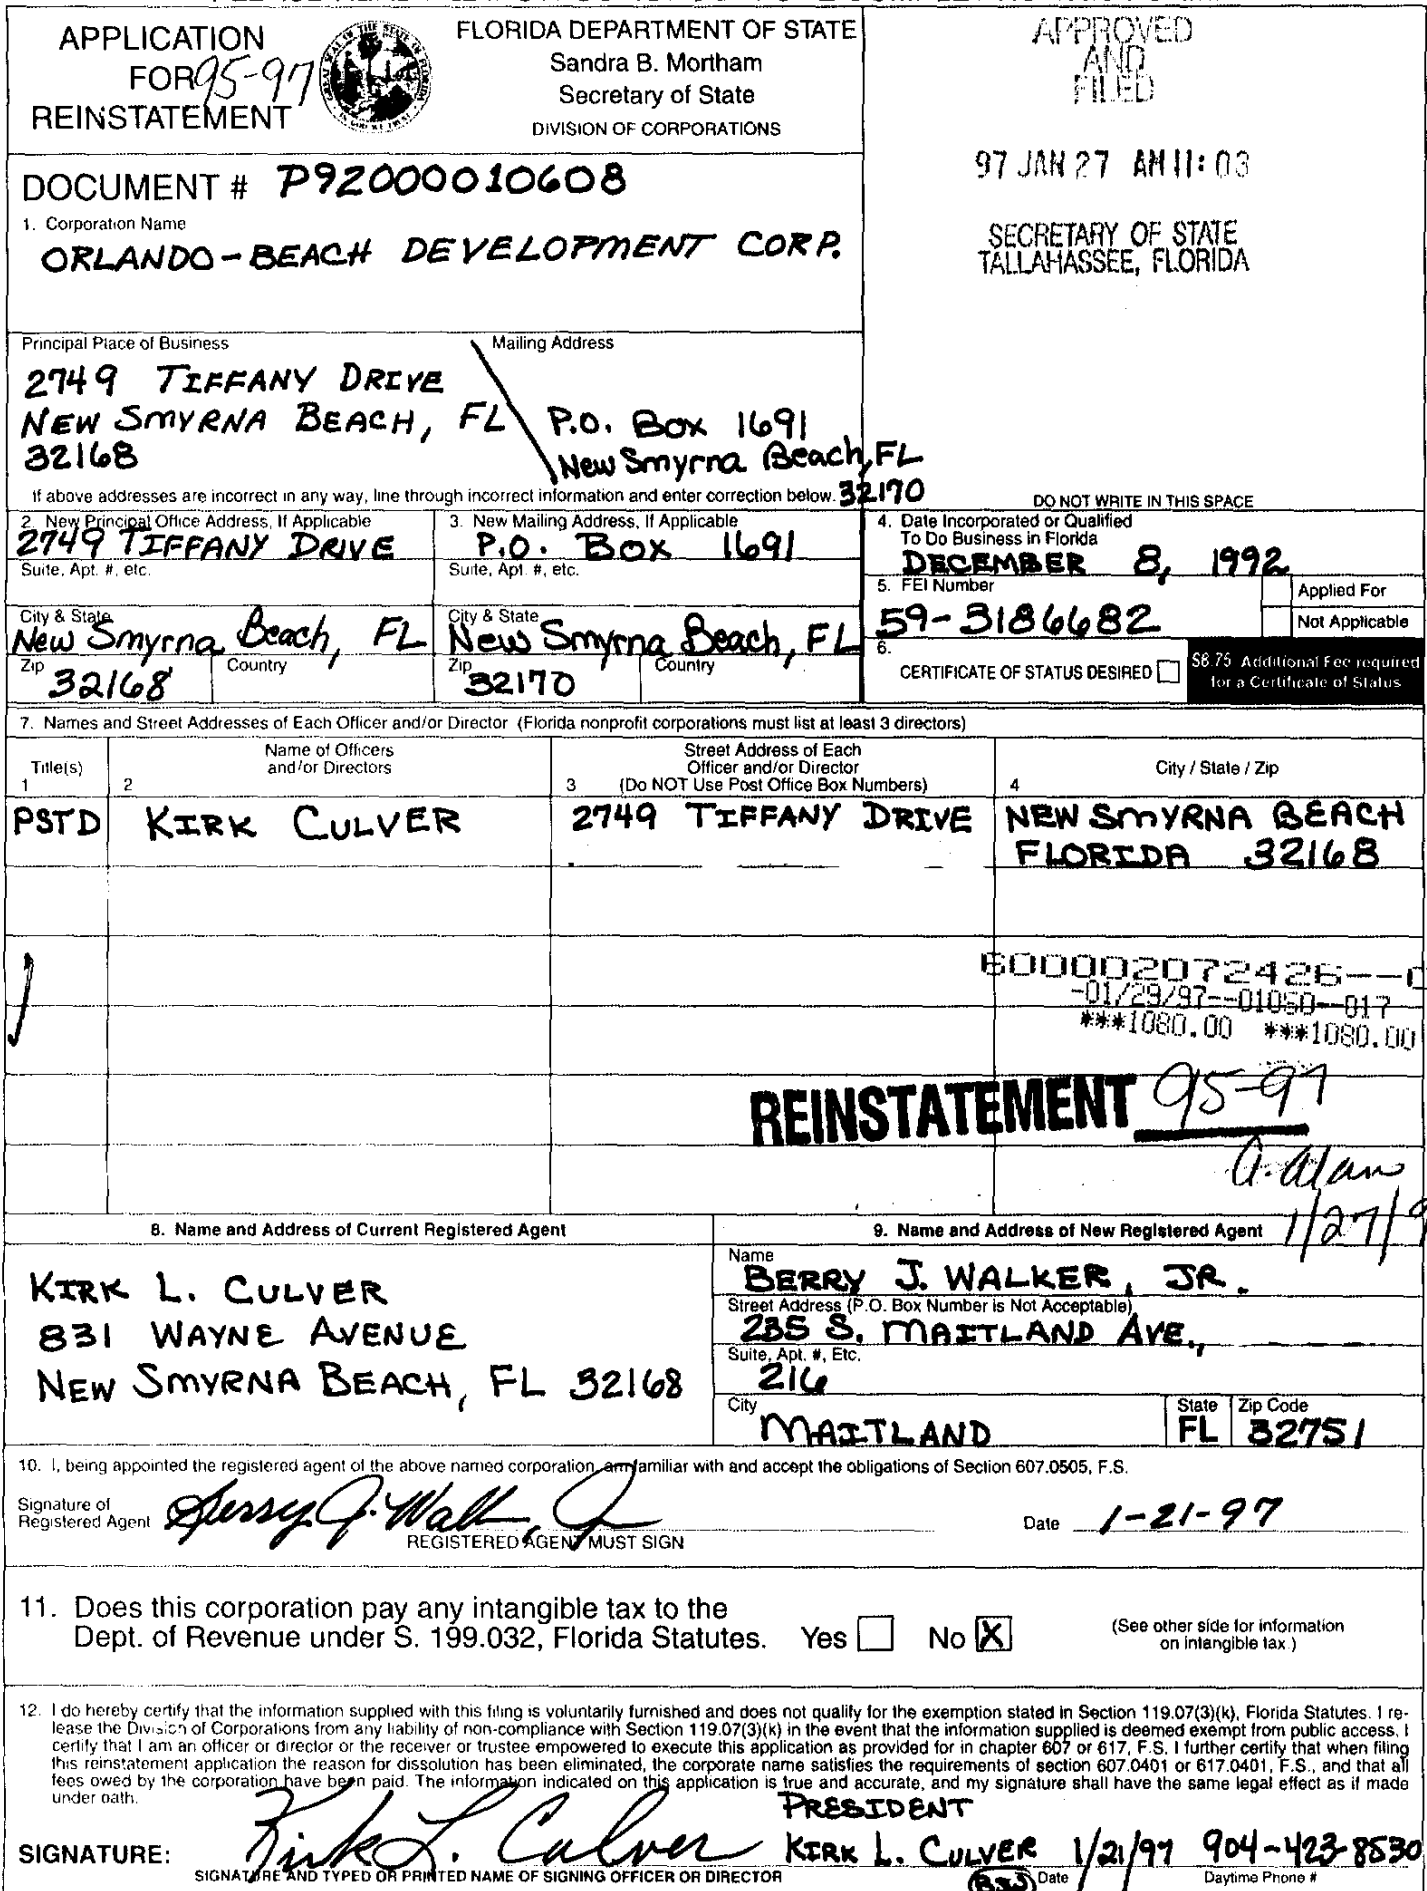 APPLICATION
FOR 95-97
REINSTATEMENT
FLORIDA DEPARTMENT OF STATE
Sandra B. Mortham
Secretary of State
DIVISION OF CORPORATIONS
APPROVED
AND
FILED
97 JAN 27 AM 11:03
SECRETARY OF STATE
TALLAHASSEE, FLORIDA
DOCUMENT # P92000010608
1. Corporation Name
ORLANDO-BEACH DEVELOPMENT CORP.
Principal Place of Business
2749 TIFFANY DRIVE
NEW SMYRNA BEACH, FL
32168
Mailing Address
P.O. Box 1691
New Smyrna Beach, FL
32170
If above addresses are incorrect in any way, line through incorrect information and enter correction below.
DO NOT WRITE IN THIS SPACE
2. New Principal Office Address, If Applicable
2749 TIFFANY DRIVE
Suite, Apt. #, etc.
City & State
New Smyrna Beach, FL
Zip
32168
Country
3. New Mailing Address, If Applicable
P.O. Box 1691
Suite, Apt. #, etc.
City & State
New Smyrna Beach, FL
Zip
32170
Country
4. Date Incorporated or Qualified
To Do Business in Florida
DECEMBER 8, 1992
5. FEI Number
59-3186682
Applied For
Not Applicable
6.
CERTIFICATE OF STATUS DESIRED
$8.75 Additional Fee required
for a Certificate of Status
7. Names and Street Addresses of Each Officer and/or Director (Florida nonprofit corporations must list at least 3 directors)
Title(s)
1
Name of Officers
and/or Directors
2
Street Address of Each
Officer and/or Director
3 (Do NOT Use Post Office Box Numbers)
City / State / Zip
4
PSTD KIRK CULVER 2749 TIFFANY DRIVE NEW SMYRNA BEACH
FLORIDA 32168
600002072426--
-01/29/97--01050--017
***1080.00 ***1080.00
REINSTATEMENT 95-97
1/27/9
8. Name and Address of Current Registered Agent
KIRK L. CULVER
831 WAYNE AVENUE
NEW SMYRNA BEACH, FL 32168
9. Name and Address of New Registered Agent
Name
BERRY J. WALKER, JR.
Street Address (P.O. Box Number is Not Acceptable)
235 S. MAITLAND AVE.,
Suite, Apt. #, Etc.
216
City
MAITLAND
State
FL
Zip Code
32751
10. I, being appointed the registered agent of the above named corporation, am familiar with and accept the obligations of Section 607.0505, F.S.
Signature of
Registered Agent
REGISTERED AGENT MUST SIGN
Date 1-21-97
11. Does this corporation pay any intangible tax to the
Dept. of Revenue under S. 199.032, Florida Statutes. Yes No X
(See other side for information
on intangible tax.)
12. I do hereby certify that the information supplied with this filing is voluntarily furnished and does not qualify for the exemption stated in Section 119.07(3)(k), Florida Statutes. I re-
lease the Division of Corporations from any liability of non-compliance with Section 119.07(3)(k) in the event that the information supplied is deemed exempt from public access. I
certify that I am an officer or director or the receiver or trustee empowered to execute this application as provided for in chapter 607 or 617, F.S. I further certify that when filing
this reinstatement application the reason for dissolution has been eliminated, the corporate name satisfies the requirements of section 607.0401 or 617.0401, F.S., and that all
fees owed by the corporation have been paid. The information indicated on this application is true and accurate, and my signature shall have the same legal effect as if made
under oath.
PRESIDENT
SIGNATURE: Kirk L. Culver KIRK L. CULVER 1/21/97 904-423-8530
SIGNATURE AND TYPED OR PRINTED NAME OF SIGNING OFFICER OR DIRECTOR
Date
Daytime Phone #